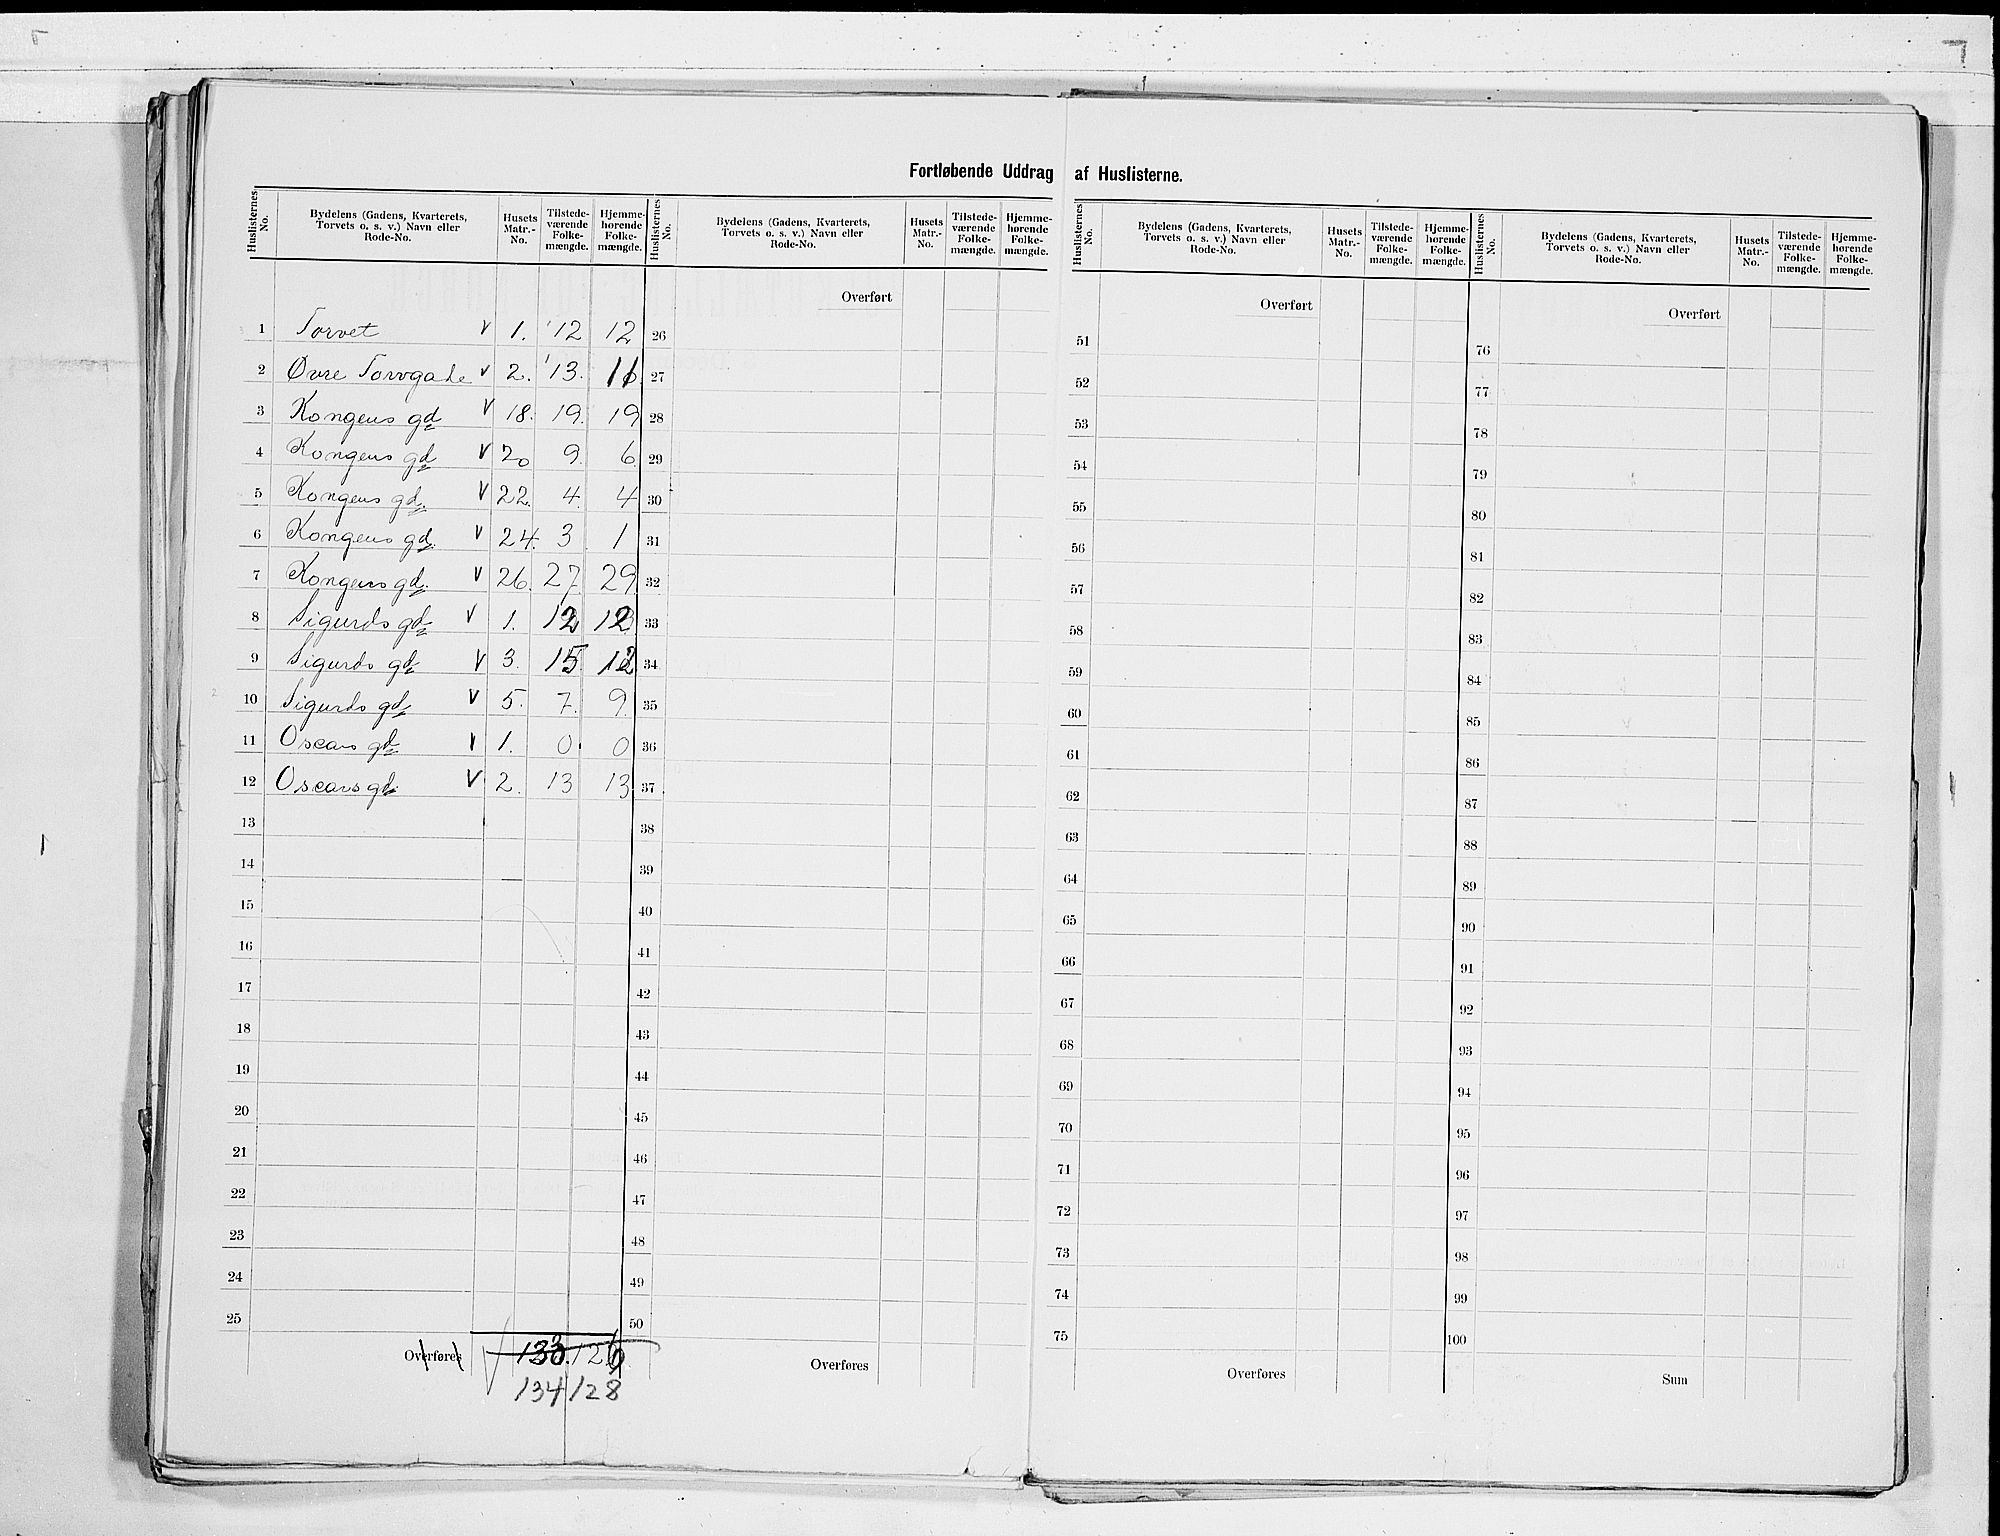 Fortløbende Uddrag af Huslisterne.
Huslisternes No. | Bydelens (Gadens, Kvarterets, Torvets o. s. v.) Navn eller Rode-No. | Husets Matr.-No. | Tilstede-værende Folke-mængde. | Hjemme-hørende Folke-mængde. | Huslisternes No. | Bydelens (Gadens, Kvarterets, Torvets o. s. v.) Navn eller Rode-No. | Husets Matr.-No. | Tilstede-værende Folke-mængde. | Hjemme-hørende Folke-mængde. | Huslisternes No. | Bydelens (Gadens, Kvarterets, Torvets o. s. v.) Navn eller Rode-No. | Husets Matr.-No. | Tilstede-værende Folke-mængde. | Hjemme-hørende Folke-mængde. | Huslisternes No. | Bydelens (Gadens, Kvarterets, Torvets o. s. v.) Navn eller Rode-No. | Husets Matr.-No. | Tilstede-værende Folke-mængde. | Hjemme-hørende Folke-mængde.
Overført Overført Overført
1 Torvet V 1. 12 12 26 51 76
2 Øvre Torvgade V 2. 13. 27 52 77
3 Kongens gd V 18. 19. 19 28 53 78
4 Kongens gd V 20 9. 6 29 54 79
5 Kongens gd. V 22. 4. 4 30 55 80
6 Kongens gd. V 24. 3 1 31 56 81
7 Kongens gd. V 26. 27. 29 32 57 82
8 Sigurds gd V 1. 12 12 33 58 83
9 Sigurds gd V 3. 15 12 34 59 84
10 Sigurds gd V 5. 7. 9. 35 60 85
11 Oscars gd V 1. 0. 0 36 61 86
12 Oscars gd. V 2. 13 13 37 62 87
13 38 63 88
14 39 64 89
15 40 65 90
16 41 66 91
17 42 67 92
18 43 68 93
19 44 69 94
20 45 70 95
21 46 71 96
22 47 72 97
23 48 73 98
24 49 74 99
25 50 75 100
Overføres Overføres Overføres Sum
134 128